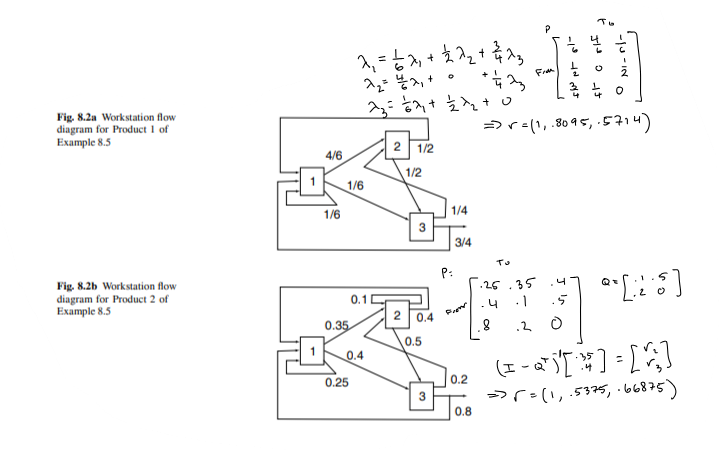 P To
λ₁ = 1/6 λ₁ + 1/2 λ₂ + 3/4 λ₃
λ₂ = 4/6 λ₁ + 0 + 1/4 λ₃
λ₃ = 1/6 λ₁ + 1/2 λ₂ + 0
From
1/6 4/6 1/6
1/2 0 1/2
3/4 1/4 0
=> r = (1, .8095, .5714)
Fig. 8.2a Workstation flow
diagram for Product 1 of
Example 8.5
4/6
2
1/2
1/2
1
1/6
1/6
1/4
3
3/4
Fig. 8.2b Workstation flow
diagram for Product 2 of
Example 8.5
0.1
2
0.4
0.35
0.5
1
0.4
0.25
0.2
3
0.8
P: To
From
.25 .35 .4
.4 .1 .5
.8 .2 0
Q = [.1 .5
.2 0]
(I - Qᵀ)⁻¹ [.35 .4] = [r₂ r₃]
=> r = (1, .5375, .66875)